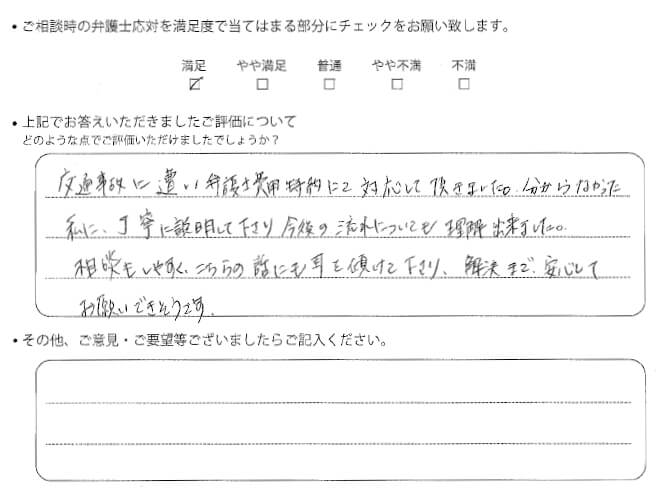 ・ご相談時の弁護士応対を満足度で当てはまる部分にチェックをお願い致します。
満足 やや満足 普通 やや不満 不満
☑ □ □ □ □
・上記でお答えいただきましたご評価について
どのような点でご評価いただけましたでしょうか？
交通事故に遭い弁護士費用特約にて対応して頂きました。分からなかった
私に、丁寧に説明して下さり今後の流れについても理解出来ました。
相談もしやすく、こちらの話にも耳を傾けて下さり、解決まで、安心して
お願いできそうです。
・その他、ご意見・ご要望等ございましたらご記入ください。